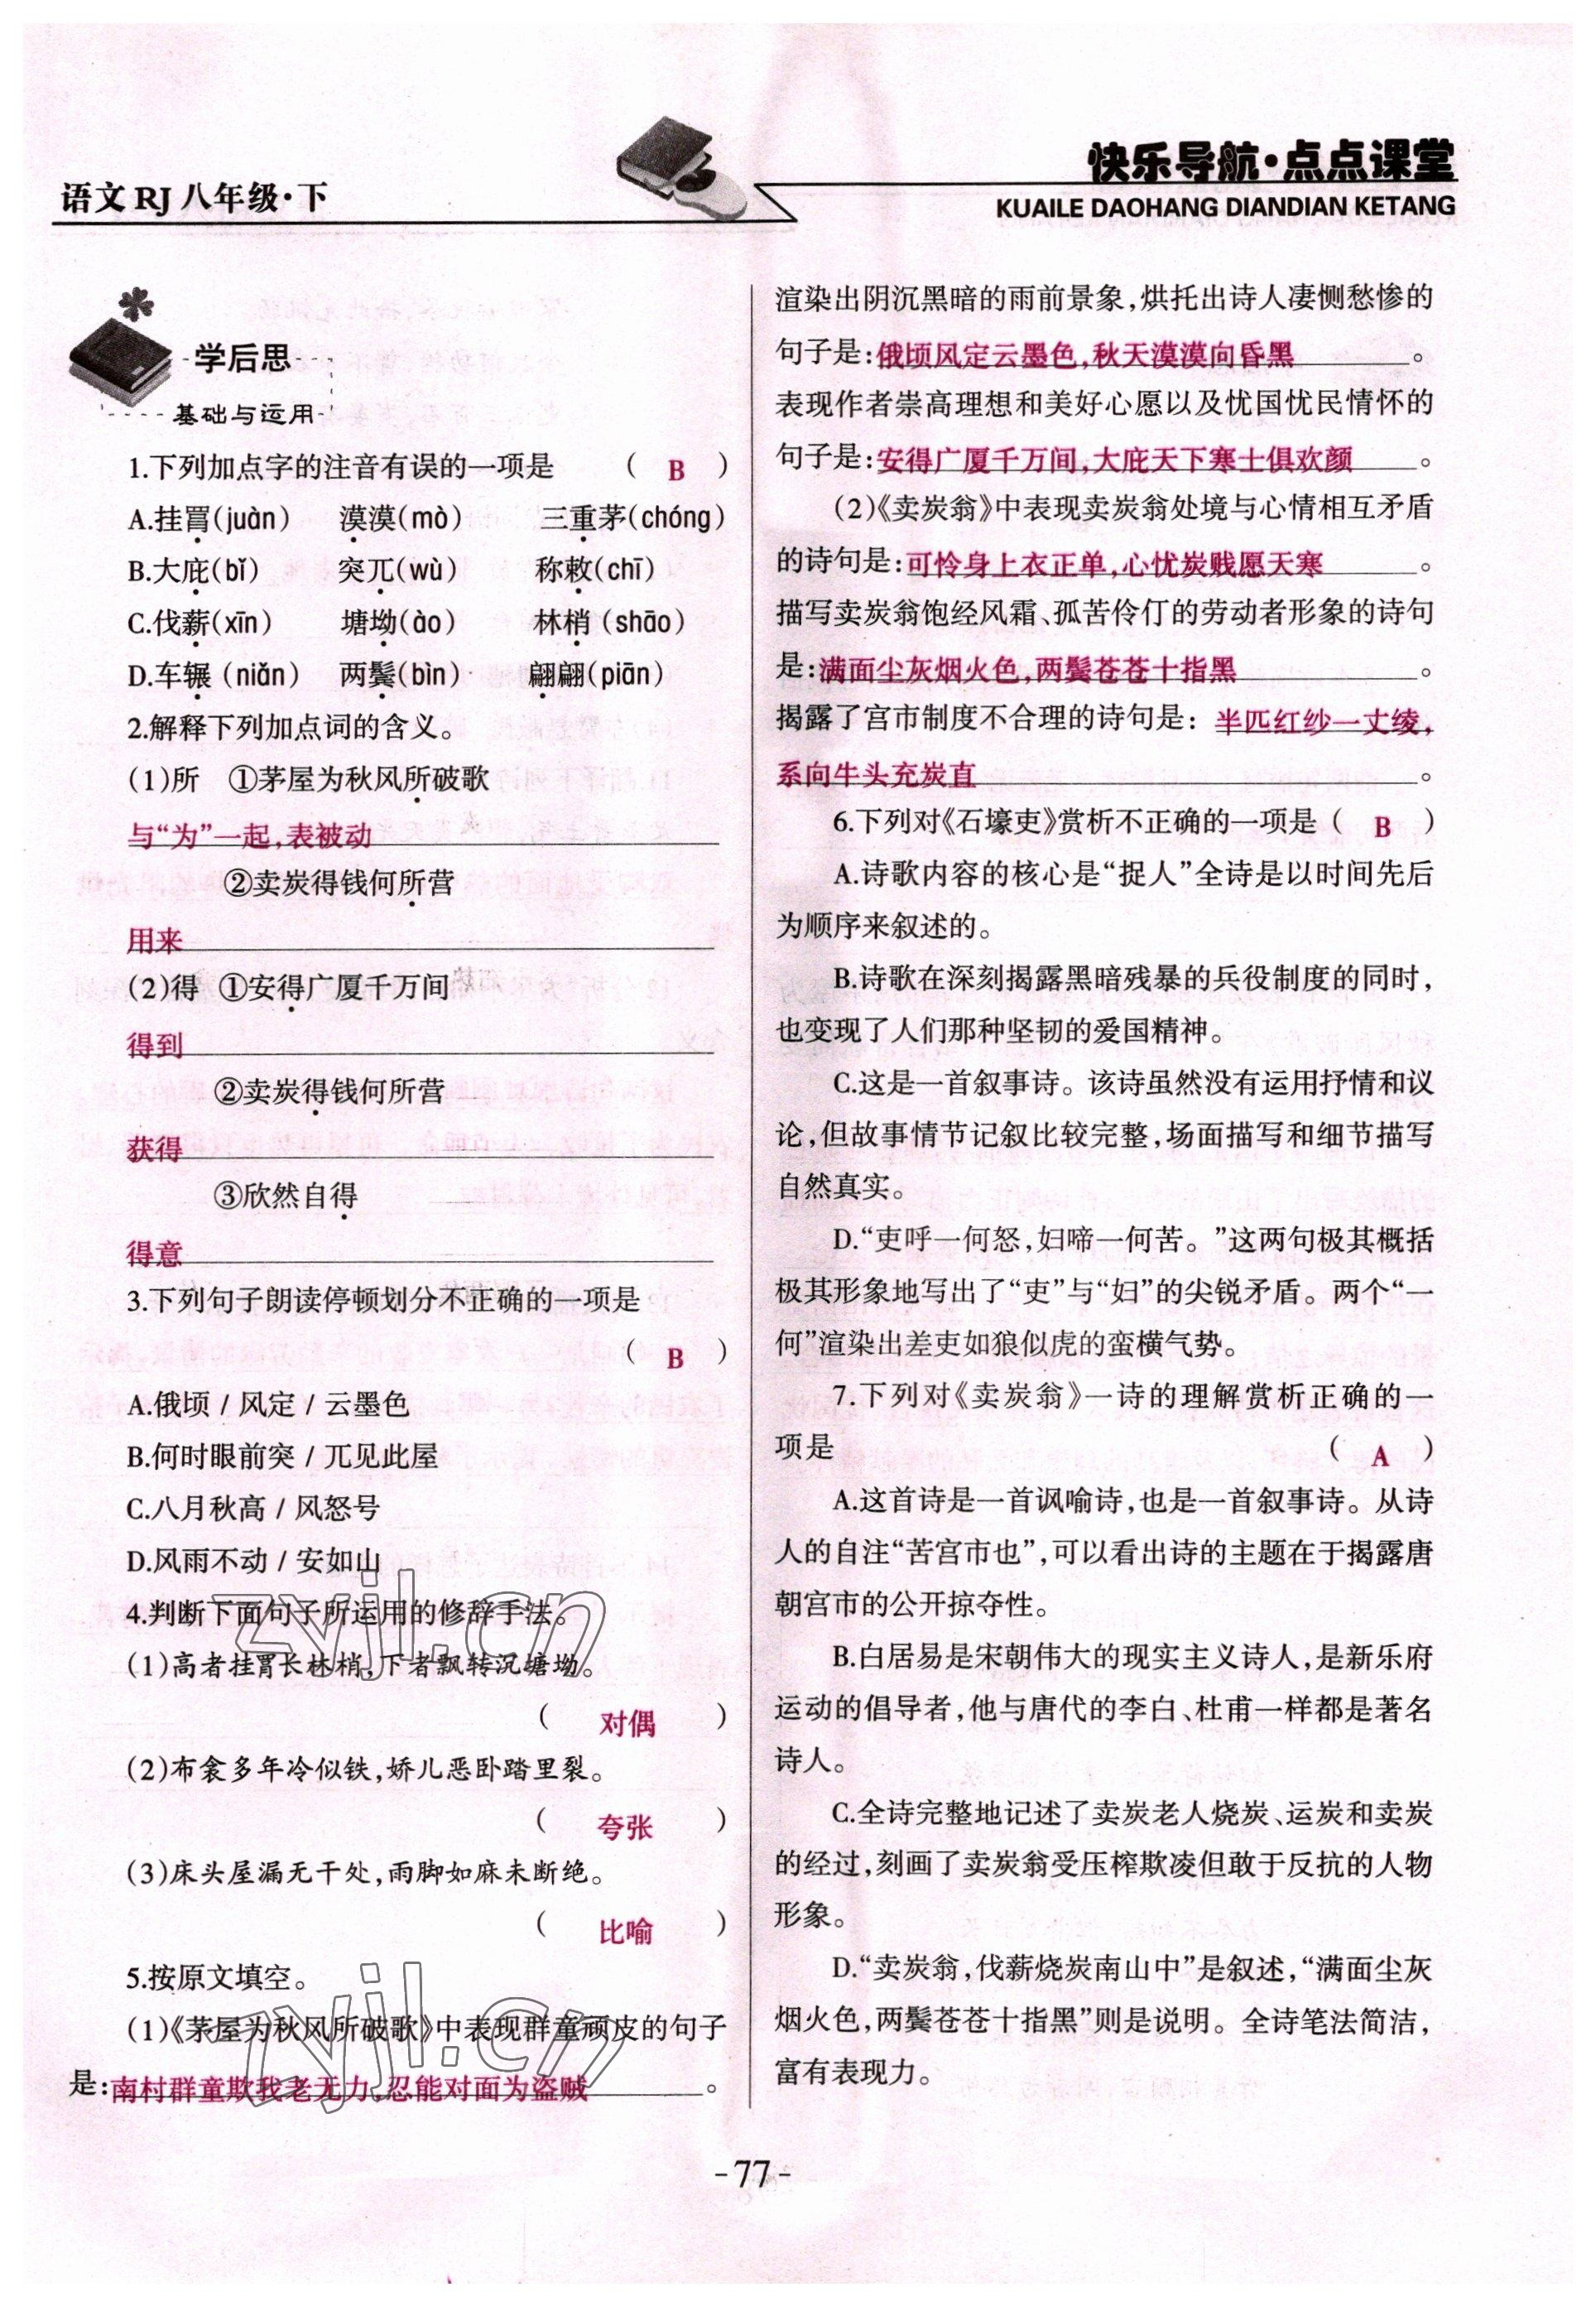 语文RJ八年级·下
快乐导航·点点课堂
KUAILE DAOHANG DIANDIAN KETANG
学后思
基础与运用
1.下列加点字的注音有误的一项是 ( B )
A.挂罥(juàn) 漠漠(mò) 三重茅(chóng)
B.大庇(bǐ) 突兀(wù) 称敕(chī)
C.伐薪(xīn) 塘坳(ào) 林梢(shāo)
D.车辗(niǎn) 两鬓(bìn) 翩翩(piān)
2.解释下列加点词的含义。
(1)所 ①茅屋为秋风所破歌
与“为”一起,表被动
②卖炭得钱何所营
用来
(2)得 ①安得广厦千万间
得到
②卖炭得钱何所营
获得
③欣然自得
得意
3.下列句子朗读停顿划分不正确的一项是
( B )
A.俄顷 / 风定 / 云墨色
B.何时眼前突 / 兀见此屋
C.八月秋高 / 风怒号
D.风雨不动 / 安如山
4.判断下面句子所运用的修辞手法。
(1)高者挂罥长林梢,下者飘转沉塘坳。
( 对偶 )
(2)布衾多年冷似铁,娇儿恶卧踏里裂。
( 夸张 )
(3)床头屋漏无干处,雨脚如麻未断绝。
( 比喻 )
5.按原文填空。
(1)《茅屋为秋风所破歌》中表现群童顽皮的句子
是:南村群童欺我老无力,忍能对面为盗贼。
渲染出阴沉黑暗的雨前景象,烘托出诗人凄恻愁惨的
句子是:俄顷风定云墨色,秋天漠漠向昏黑。
表现作者崇高理想和美好心愿以及忧国忧民情怀的
句子是:安得广厦千万间,大庇天下寒士俱欢颜。
(2)《卖炭翁》中表现卖炭翁处境与心情相互矛盾
的诗句是:可怜身上衣正单,心忧炭贱愿天寒。
描写卖炭翁饱经风霜、孤苦伶仃的劳动者形象的诗句
是:满面尘灰烟火色,两鬓苍苍十指黑。
揭露了宫市制度不合理的诗句是: 半匹红纱一丈绫,
系向牛头充炭直。
6.下列对《石壕吏》赏析不正确的一项是 ( B )
A.诗歌内容的核心是“捉人”全诗是以时间先后
为顺序来叙述的。
B.诗歌在深刻揭露黑暗残暴的兵役制度的同时,
也变现了人们那种坚韧的爱国精神。
C.这是一首叙事诗。该诗虽然没有运用抒情和议
论,但故事情节记叙比较完整,场面描写和细节描写
自然真实。
D.“吏呼一何怒,妇啼一何苦。”这两句极其概括
极其形象地写出了“吏”与“妇”的尖锐矛盾。两个“一
何”渲染出差吏如狼似虎的蛮横气势。
7.下列对《卖炭翁》一诗的理解赏析正确的一
项是 ( A )
A.这首诗是一首讽喻诗,也是一首叙事诗。从诗
人的自注“苦宫市也”,可以看出诗的主题在于揭露唐
朝宫市的公开掠夺性。
B.白居易是宋朝伟大的现实主义诗人,是新乐府
运动的倡导者,他与唐代的李白、杜甫一样都是著名
诗人。
C.全诗完整地记述了卖炭老人烧炭、运炭和卖炭
的经过,刻画了卖炭翁受压榨欺凌但敢于反抗的人物
形象。
D.“卖炭翁,伐薪烧炭南山中”是叙述,“满面尘灰
烟火色,两鬓苍苍十指黑”则是说明。全诗笔法简洁,
富有表现力。
zyjl.cn
zyjl.cn
-77-